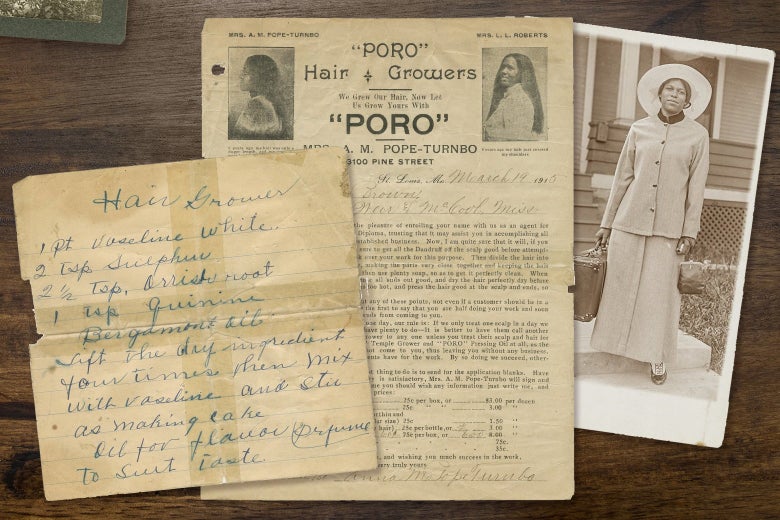 Hair Grower
1 pt Vaseline White.
2 tsp Sulphur
2 1/2 tsp. Orrisd root
1 tsp Quinine
Bergamont Oil.
Sift the dry ingredient
four times then mix
with vaseline and stir
as making cake
Oil for flavor (Perfume
to Suit taste
MRS. A. M. POPE-TURNBO
MRS. L. L. ROBERTS
"PORO"
Hair & Growers
We Grew Our Hair, Now Let
Us Grow Yours With
"PORO"
A. M. POPE-TURNBO
3100 PINE STREET
St. Louis, Mo. March 19, 1915
Brown
Weir & McCool, Miss
the pleasure of enrolling your name with us as an agent for
Diploma, trusting that it may assist you in accomplishing all
established business. Now, I am quite sure that it will, if you
sure to get all the Dandruff of the scalp good before attempt-
over your work for this purpose. Then divide the hair into
making the parts very close together and keeping the hair
then use plenty soap, so as to get it perfectly clean. When
all suds out good, and dry the hair perfectly dry before
too hot, and press the hair good at the scalp and ends, so
any of these points, not even if a customer should be in a
the first to say that you are half doing your work and soon
ends from coming to you.
day, our rule is: If we only treat one scalp in a day we
have plenty to do—It is better to have them call another
grower to any one unless you treat their scalp and hair for
Temple Grower and "PORO" Pressing Oil at all, as the
not come to you, thus leaving you without any business.
have for the work. By so doing we succeed, other-
thing to do is to send for the application blanks. Have
is satisfactory, Mrs. A. M. Pope-Turnbo will sign and
you should wish any information just write me, and
prices:
75c per box, or $5.00 per dozen
75c 3.00 "
thin and
size) 25c 1.50 "
hair), 25c per bottle, or 3.00 "
75c per box, or 6.00 8.00 "
75c.
35c.
and wishing you much success in the work,
very truly yours
Anna M. Pope Turnbo